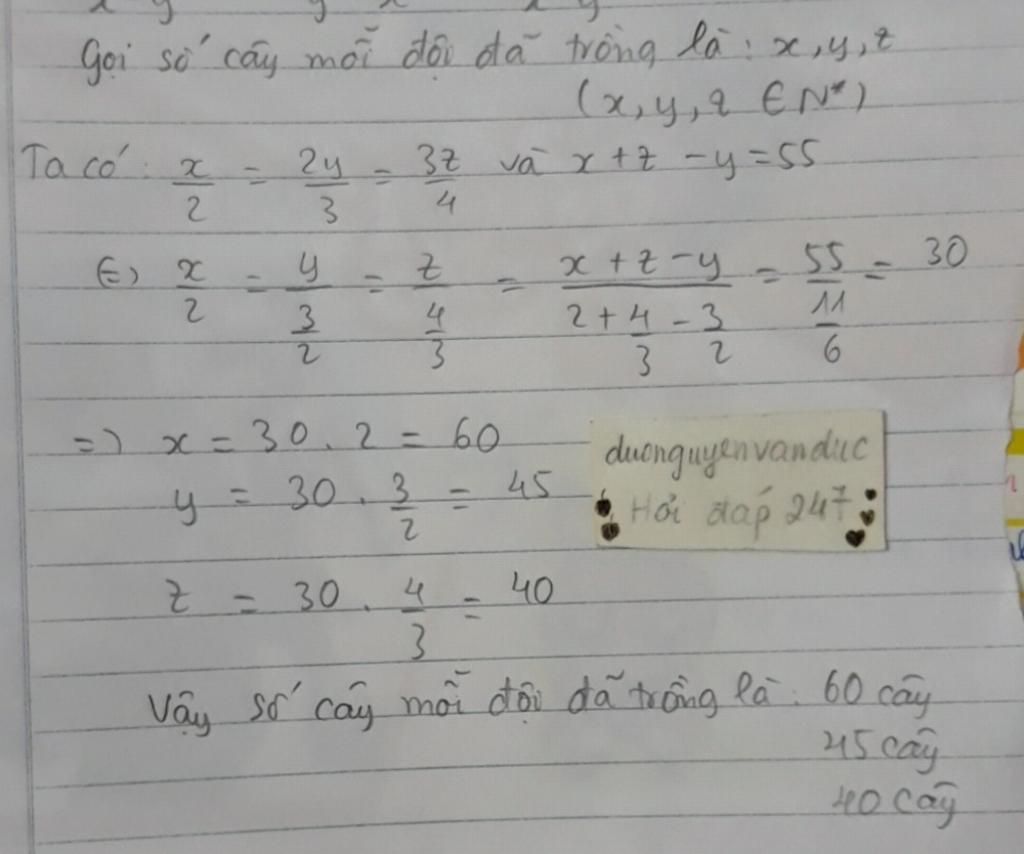 Gọi số cây mỗi đội đã trồng là: x, y, z
(x, y, z ∈ N*)
Ta có: x/2 = 2y/3 = 3z/4 và x + z - y = 55
(=) x/2 = y/(3/2) = z/(4/3) = (x + z - y)/(2 + 4/3 - 3/2) = 55/(11/6) = 30
=) x = 30 . 2 = 60
y = 30 . 3/2 = 45
z = 30 . 4/3 = 40
duonguyenvanduc
Hỏi đáp 247
Vậy số cây mỗi đội đã trồng là: 60 cây
45 cây
40 cây